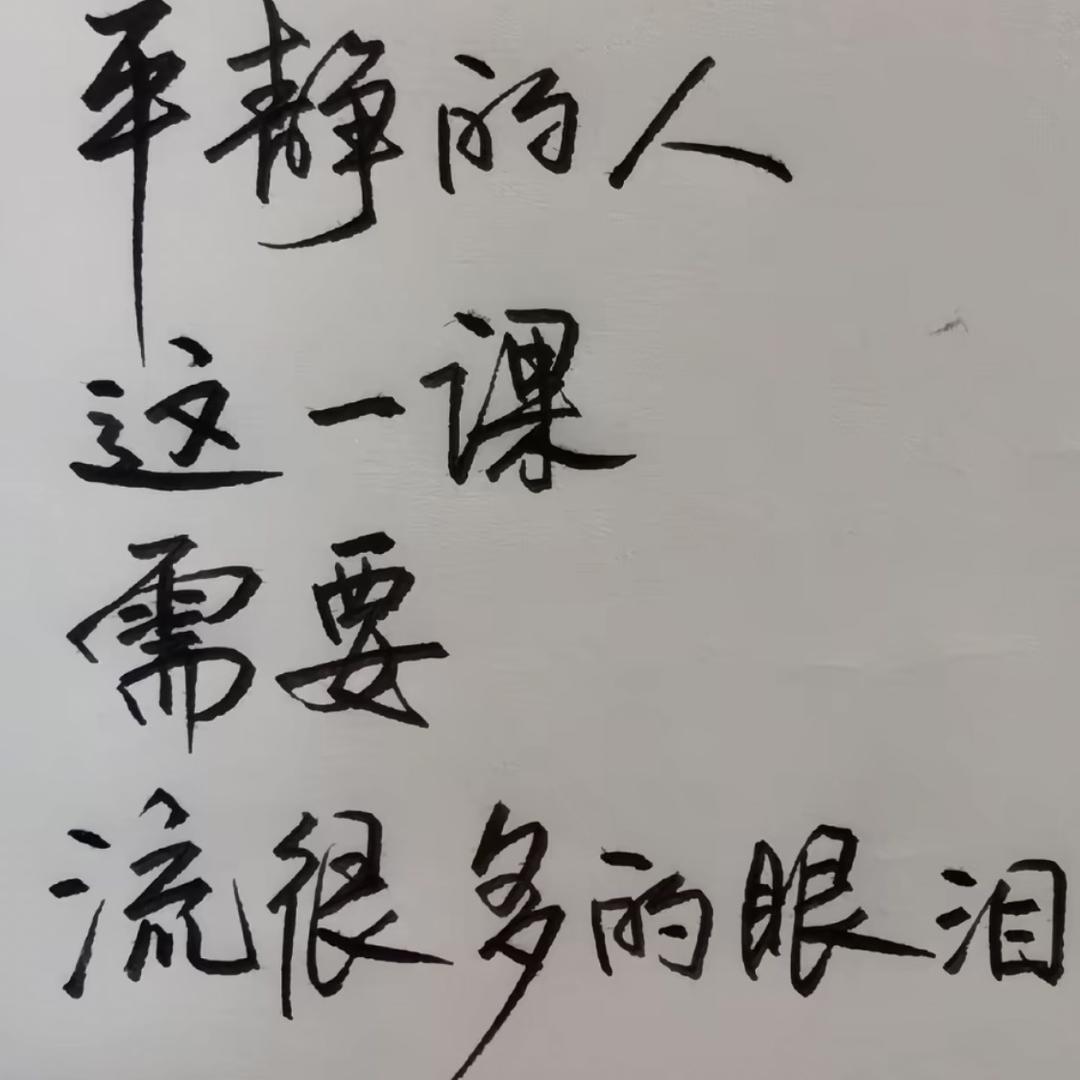 平静的人
这一课
需要
流很多的眼泪